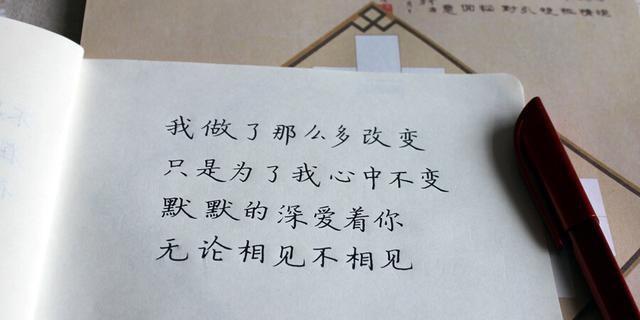 我做了那么多改变
只是为了我心中不变
默默的深爱着你
无论相见不相见